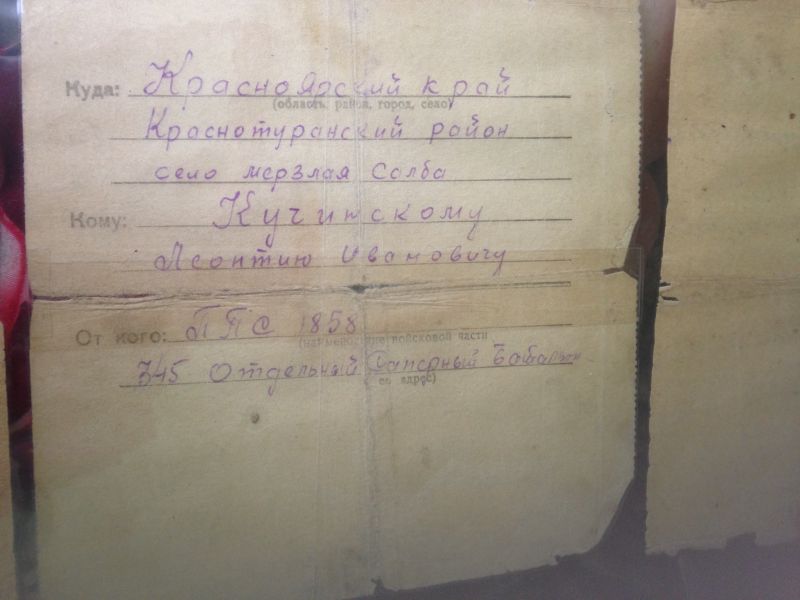 Куда: Красноярский край
(область, район, город, село)
Краснотуранский район
село мерзлая Солба
Кому: Кучинскому
Леонтию Ивановичу
От кого: ППС 1858
(наименование войсковой части
345 Отдельный Саперный Батальон
ее адрес)